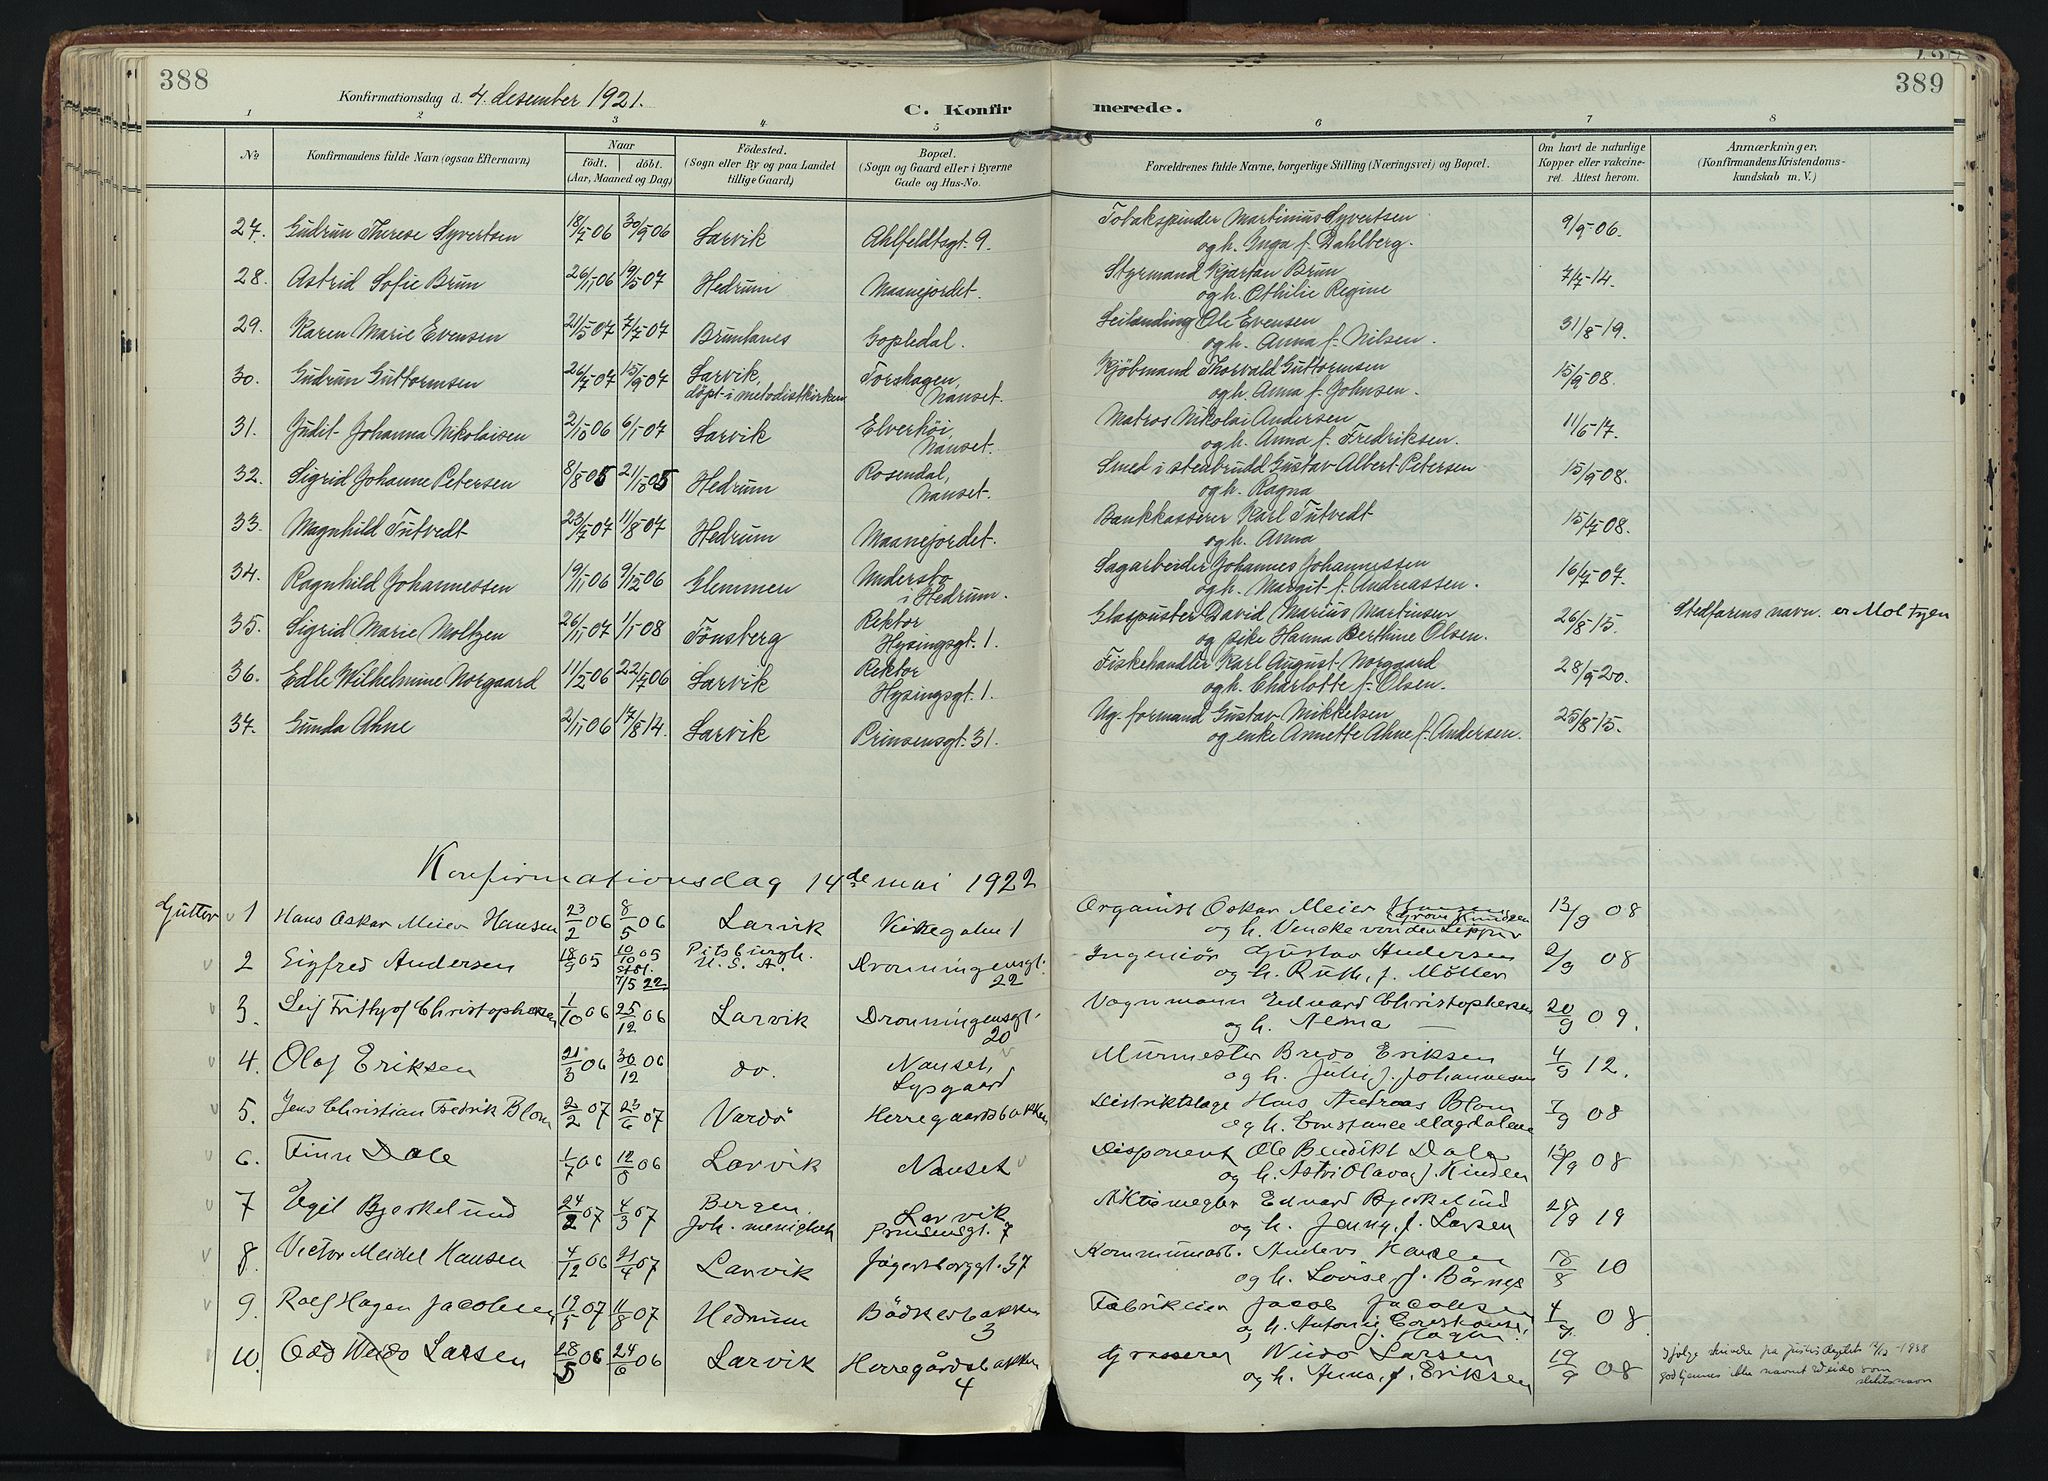 388
389
Konfirmationsdag d. 4. desember 1921.
C. Konfirmerede.
1 2 3 4 5 6 7 8
No.
Konfirmandens fulde Navn (ogsaa Efternavn)
Naar
født. døbt.
(Aar, Maaned og Dag)
Födested.
(Sogn eller By og paa Landet
tillige Gaard)
Bopæl.
(Sogn og Gaard eller i Byerne
Gade og Hus-No.
Forældrenes fulde Navne, borgerlige Stilling (Næringsvei) og Bopæl.
Om havt de naturlige
Kopper eller vakcine-
ret. Attest herom.
Anmærkninger.
(Konfirmandens Kristendoms-
kundskab m. V.)
27. Gudrun Therese Syvertsen 18/7 06 30/9 06 Larvik Ahlfeldtsgt. 9. Tobakspinder Martinius Syvertsen 9/9-06.
og h. Inga f. Dahlberg.
28. Astrid Sofie Brun 26/11 06 19/5 07 Hedrum Maanejordet. Styrmand Kjartan Brun 7/7-14.
og h. Othilie Regine
29. Karen Marie Evensen 21/5 07 7/7 07 Brunlanes Gopledal. Leilending Ole Evensen 31/8-19.
og h. Anna f. Nilsen.
30. Gudrun Guttormsen 26/7 07 15/9 07 Larvik, Torshagen, Kjöbmand Thorvald Guttormsen 15/9-08.
döpt i metodistkirken Nanset. og h. Anna f. Johnsen.
31. Judit Johanna Nikolaisen 2/10 06 6/1 07 Larvik Elverhöi, Matros Nikolai Andersen 11/6-17.
Nanset. og h. Anna f. Fredriksen.
32. Sigrid Johanne Petersen 8/8 05 21/10 05 Hedrum Rosendal, Smed i stenbrudd Gustav Albert Petersen 15/9-08.
Nanset. og h. Ragna
33. Magnhild Tutvedt 23/7 07 11/8 07 Hedrum Maanejordet. Bankkasserer Karl Tutvedt 15/7-08.
og h. Anna
34. Ragnhild Johannessen 19/11 06 9/12 06 Glemmen Undersbo Sagarbeider Johannes Johannessen 16/7-07.
i Hedrum. og h. Margit f. Andreassen.
35. Sigrid Marie Moltzen 26/11 07 1/1 08 Tönsberg Rektor Glaspuster David Marius Martinsen 26/8-15. Stedfarens navn er Moltzen
Hysingsgt. 1. og pike Hanna Berthine Olsen.
36. Edle Wilhelmine Norgaard 11/2 06 22/7 06 Larvik Rektor Fiskehandler Karl August Norgaard 28/9-20.
Hysingsgt. 1. og h. Charlotte f. Olsen.
37. Gunda Ahne 2/11 06 17/8 14. Larvik Prinsensgt. 31. Ug. formand Gustav Mikkelsen 25/8-15.
og enke Annette Ahne f. Andersen.
Konfirmationsdag 14de mai 1922
Gutter 1 Hans Oskar Meier Hansen 23/2 06 8/5 06 Larvik Organist Oskar Meier Hansen 13/9 08
og h. Vencke von der Lippe
2 Sigfred Andersen 18/9 05 10/10 05 Pitsburgh. Dronningensgt. Ingeniör Gustav Andersen 2/9 08
7/5 22 U.S.A. 22 og h. Ruth, f. Möller
3. Leif Frithjof Christophersen 1/10 06 25/12 06 Larvik Dronningensgt. Vognmann Edvard Christophersen 20/9 09.
20 og h. Alma —
4. Olaf Eriksen 21/3 06 30/12 06 do. Nanset, Murmester Bredo Eriksen 4/9 12.
Lysgaard og h. Julie f. Johannesen
5. Jens Christian Fredrik Blom 2/2 07 23/6 07 Vardö Herregaardsbakken Distriktslæge Hans Andreas Blom 7/9 08
og h. Constance Magdalene
6. Finn Dale 1/7 06 12/8 06 Larvik Nanset Disponent Ole Bendikt Dale 12/9 08
og h. Astri Olava f. Kinden
7 Egil Bjerkelund 24/2 07 4/3 07 Bergen. Larvik Aktiemegler Edvard Bjerkelund 25/9 19
Joh. menighet Prinsensgt. 7 og h. Jenny, f. Larsen
8. Victor Meidel Hansen 4/12 06 21/4 07 Larvik Jägersborggt. 37 Kommunearb. Anders Hansen 18/8 10
og h. Lovise, f.
9. Rolf Hagen Jacobsen 19/5 07 11/8 07 Hedrum Bödkerbakken Fabrikeier Jacob Jacobsen 4/9 08.
3 og h. Antonie f. Hagen
10. Odd Weido Larsen 28/5 06 24/6 06 Larvik Herregårdsbakken Grosserer Weido Larsen 19/9 08 Ifølge skrivelse fra justisdeptet 1938
4 og h. Anna, f. Eriksen godkjennes ikke navnet Weido som
slektsnavn